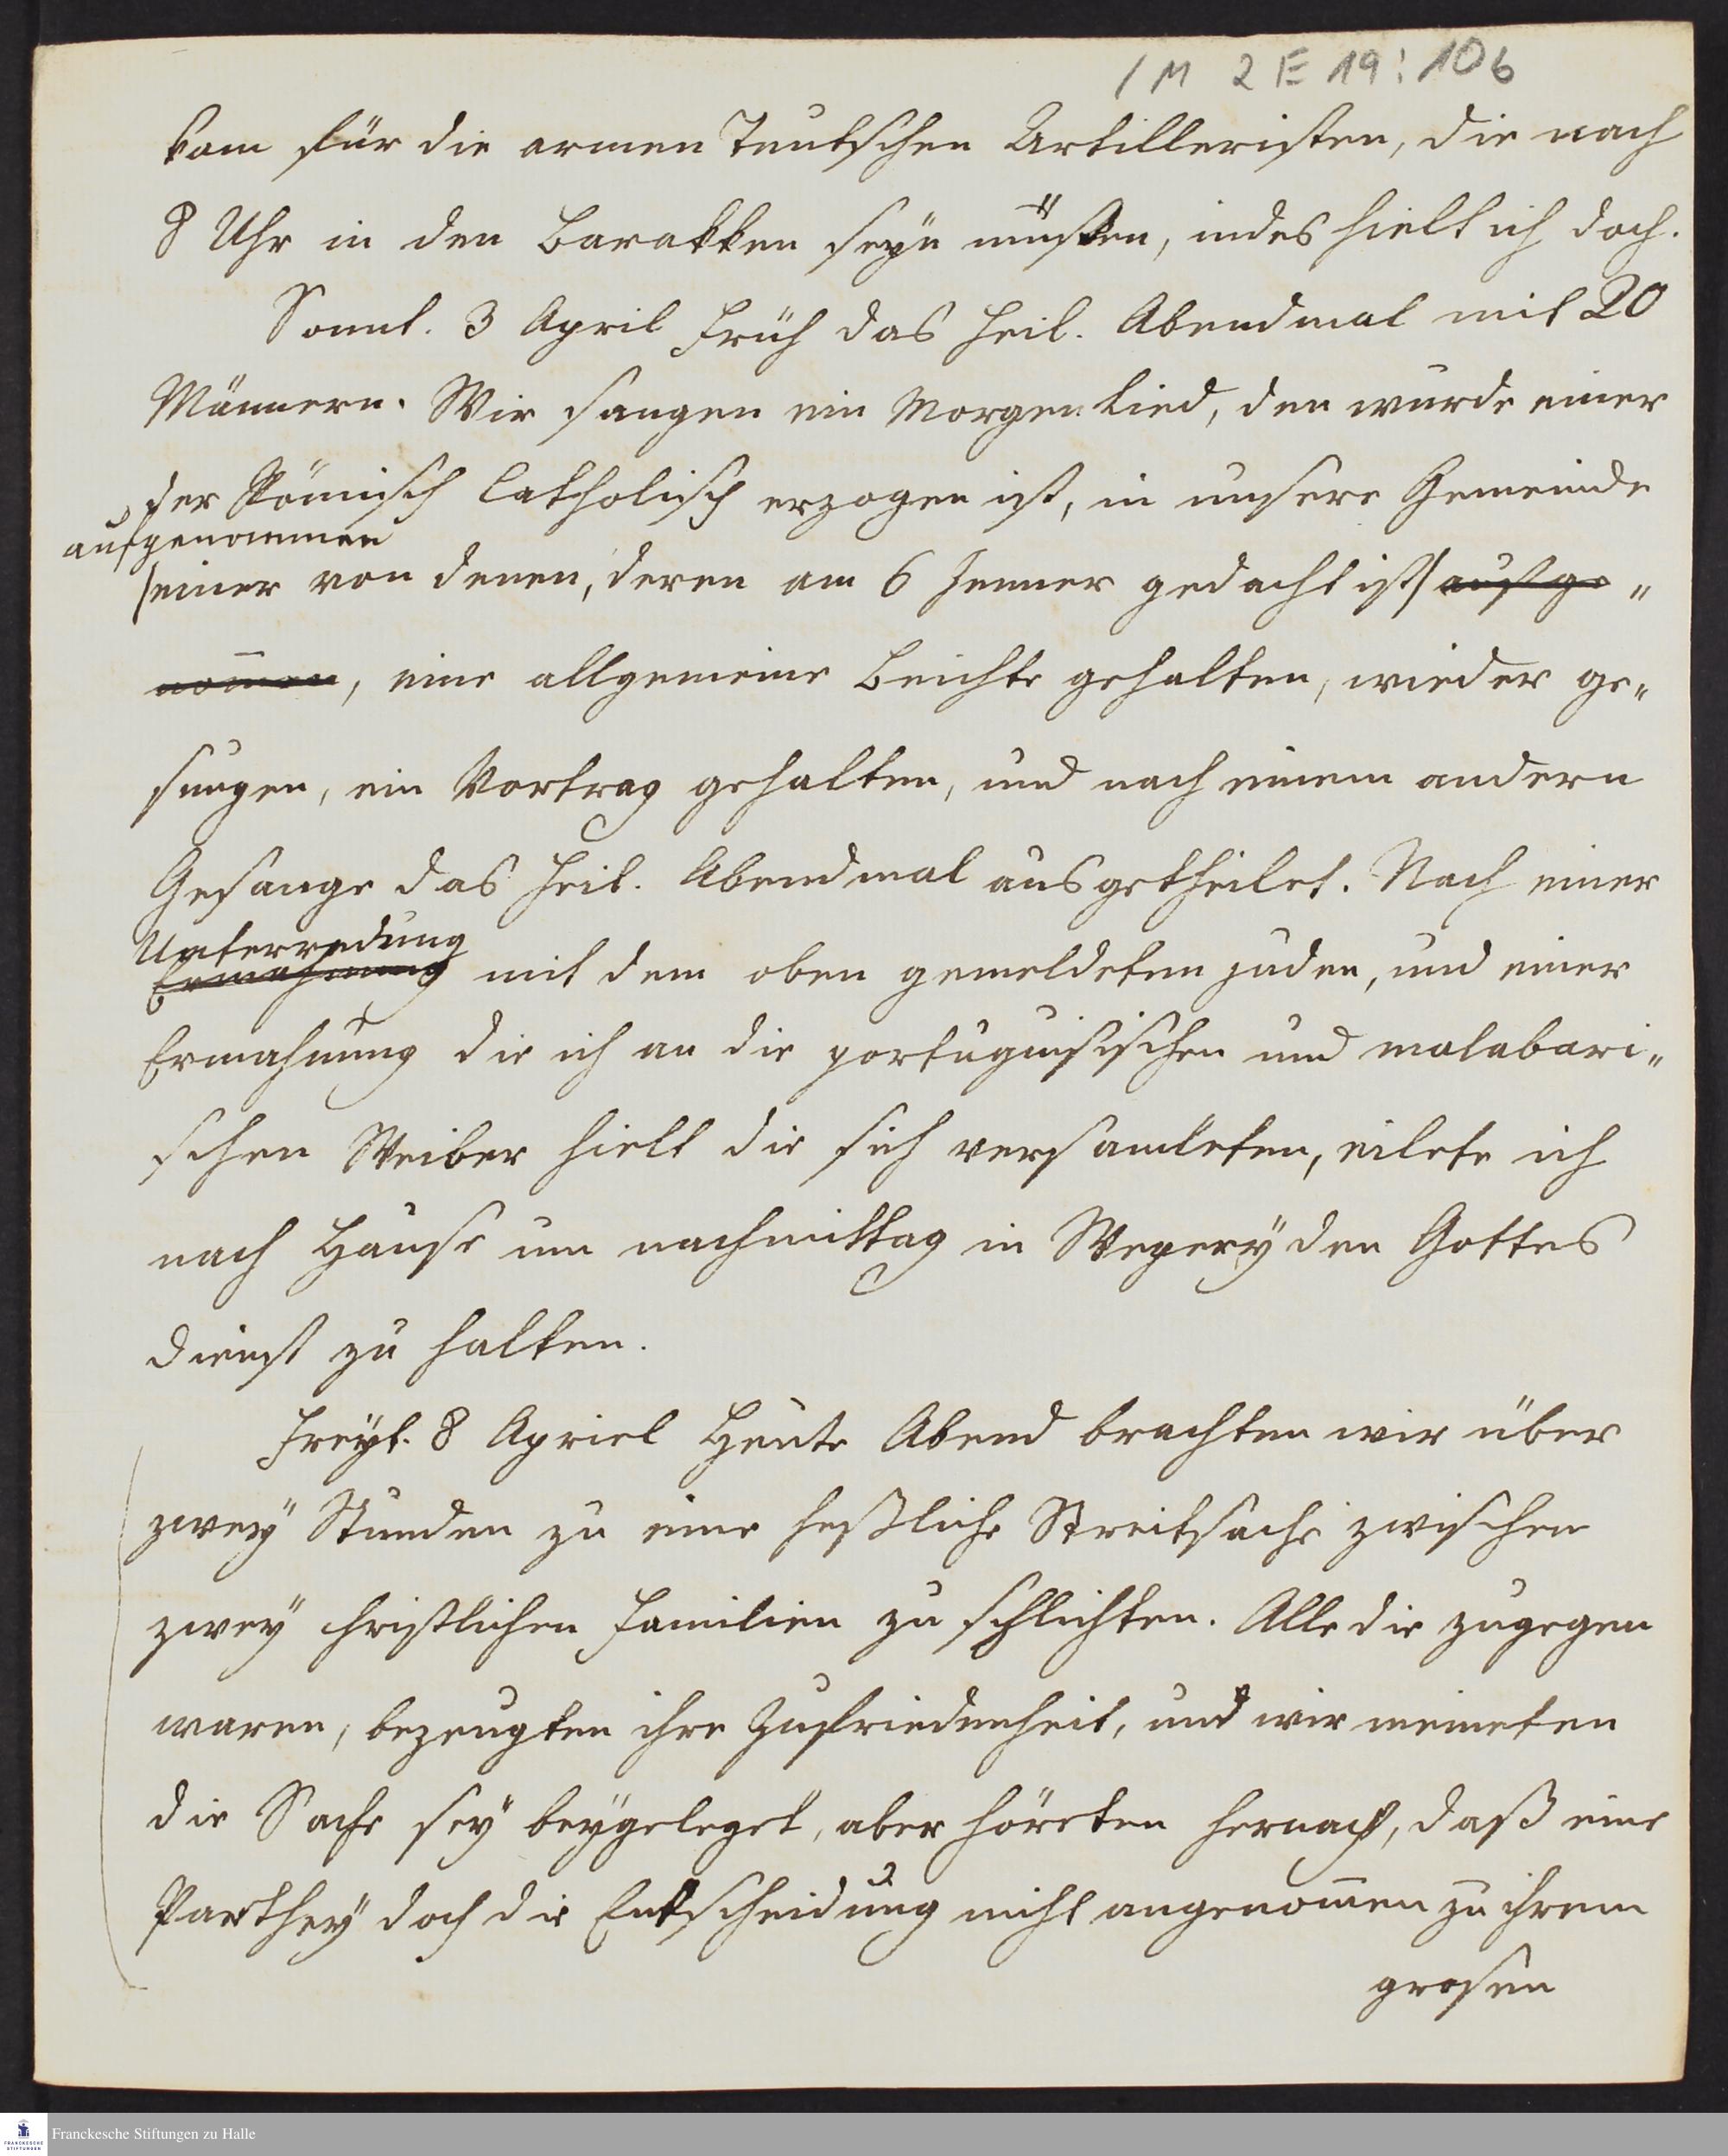 1 M 2 E 19 : 106
kam für die armen Teutschen Artilleristen, die nach
8 Uhr in den Barakken seyn müsten, indes hielt ich doch.
Sonnt. 3 April früh das heil. Abendmal mit 20
Männern. Wir sangen ein Morgenlied, den wurde einer
der Römisch Catholisch erzogen ist, in unsere Gemeinde
aufgenommen
/einer von denen, deren am 6 Jenner gedacht ist/ aufge„
nom̄en, eine allgemeine Beichte gehalten, wieder ge„
sungen, ein Vortrag gehalten, und nach einem andern
Gesange das heil. Abendmal ausgetheilet. Nach einer
Unterredung
Ermahnung mit dem oben gemeldeten Juden, und einer
Ermahnung die ich an die portugiesischen und malabari„
schen Weiber hielt die sich versamleten, eilete ich
nach Hause um nachmittag in Wepery den Gottes
dienst zu halten.
Freyt. 8 Apriel Heute Abend brachten wir über
zwey Stunden zu eine heßliche Streitsache zwischen
zwey christlichen Familien zu schlichten. Alle die zugegen
waren, bezeugten ihre Zufriedenheit, und wir meineten
die Sache sey beygeleget, aber höreten hernach, daß eine
Parthey doch die Entscheidung nicht angenom̄en zu ihrem
grosen
Franckesche Stiftungen zu Halle